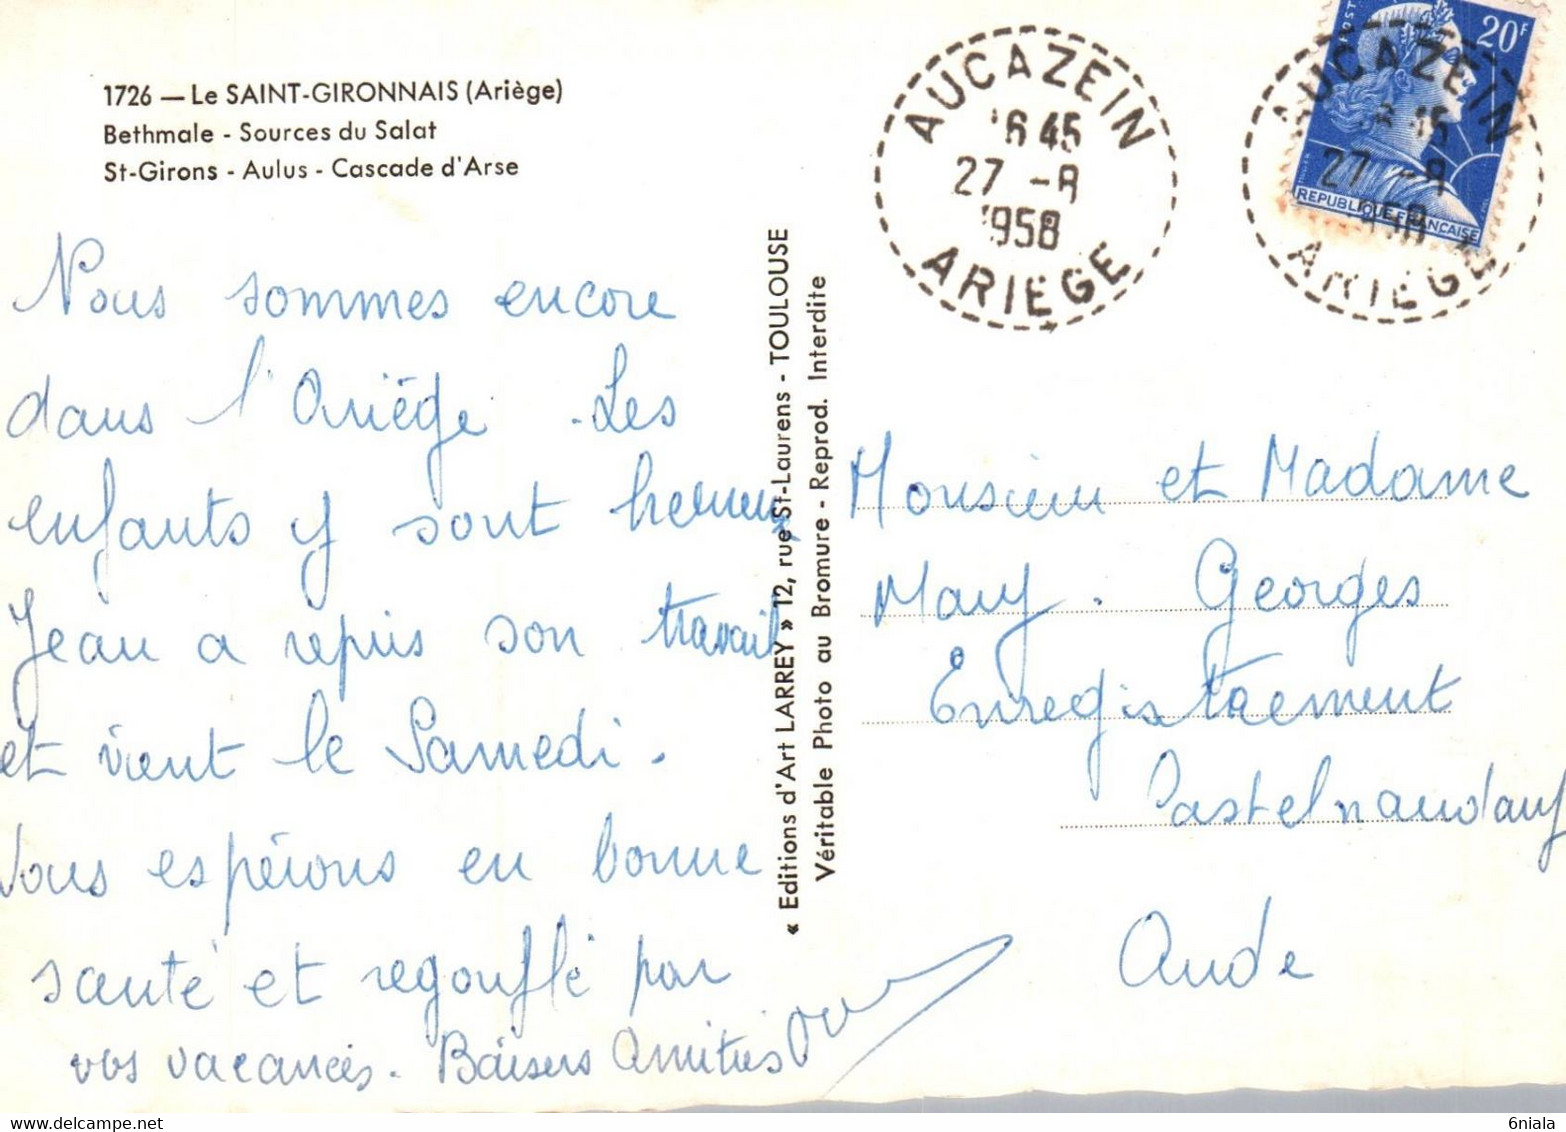 1726 — Le SAINT-GIRONNAIS (Ariège)
Bethmale - Sources du Salat
St-Girons - Aulus - Cascade d'Arse
Nous sommes encore
dans l'Ariège. Les
enfants y sont heureux
Jean a repris son travail
et vient le Samedi.
Vous espérons en bonne
santé et regonflé par
vos vacances. Baisers Amitiés
« Editions d'Art LARREY » 12, rue St-Laurens - TOULOUSE
Véritable Photo au Bromure - Reprod. Interdite
AUCAZEIN
16 45
27 -8
1958
ARIEGE
POST
20F
REPUBLIQUE FRANCAISE
AUCAZEIN
16 45
27 -8
1958
ARIEGE
Monsieur et Madame
Georges
Enregistrement
Castelnaudary
Aude
6niala